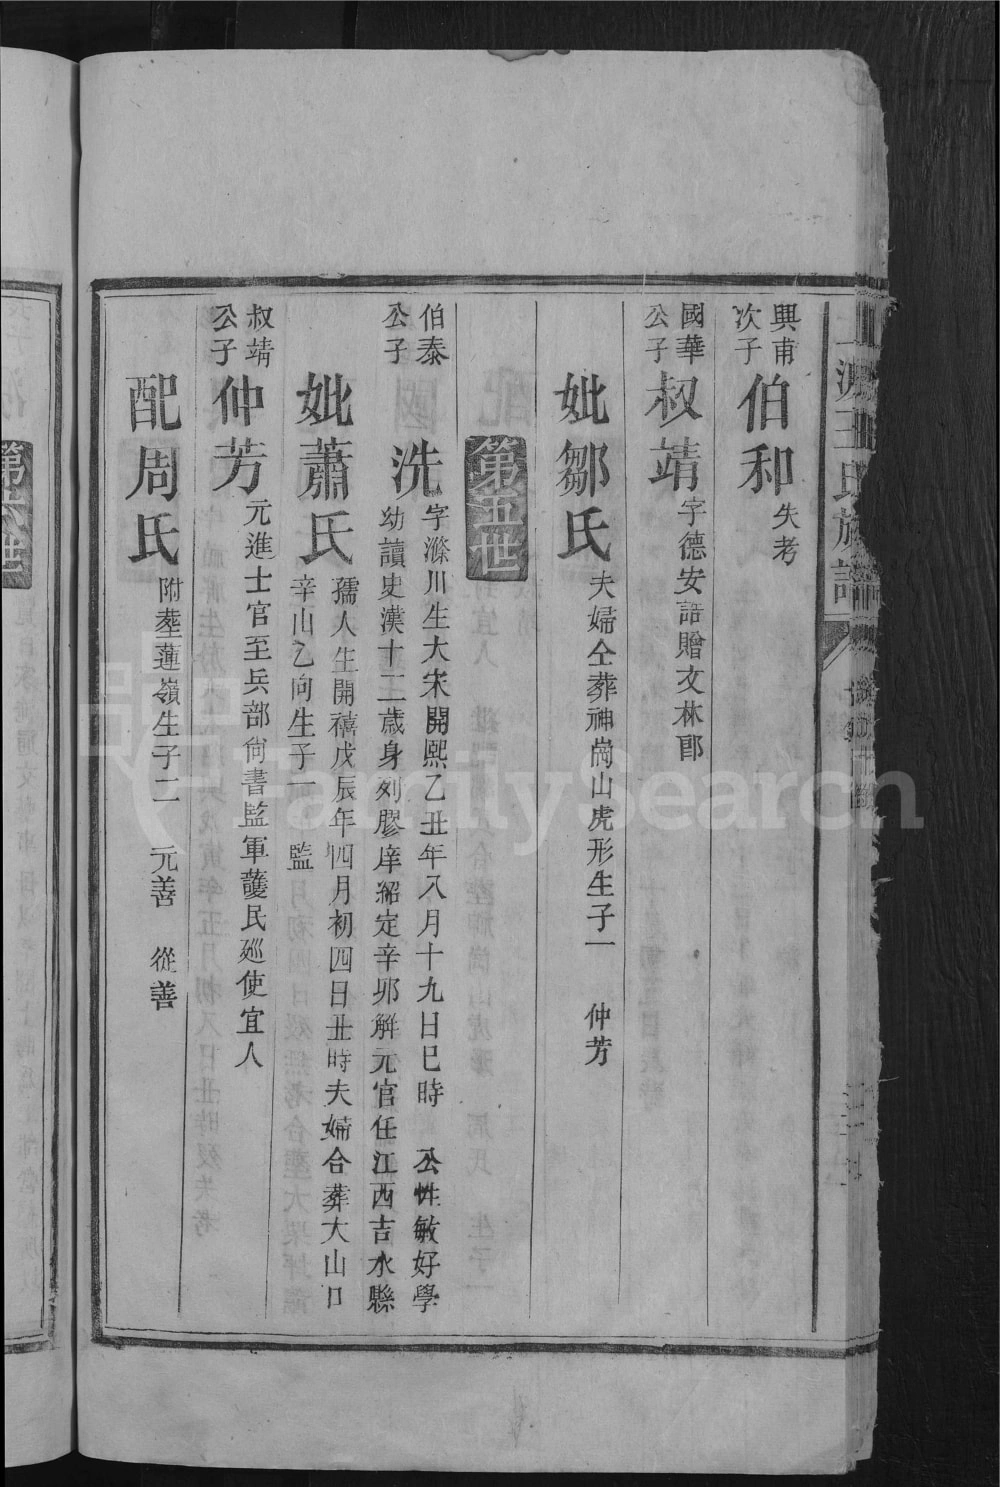 興甫
次子
伯和
失考
國華
公子
叔靖
字德安誥贈文林郎
妣鄒氏
夫婦仝葬神崗山虎形生子一 仲芳
第五世
伯泰
公子
洗
字滌川生大宋開熙乙丑年八月十九日巳時 公性敏好學
幼讀史漢十二歲身列膠庠紹定辛卯解元官任江西吉水縣
妣蕭氏
孺人生開禧戊辰年四月初四日丑時夫婦合葬大山口
辛山乙向生子一 監
叔靖
公子
仲芳
元進士官至兵部尙書監軍護民廵使宜人
配周氏
附塟蓮嶺生子二 元善 從善
王氏族譜
第六世
FamilySearch